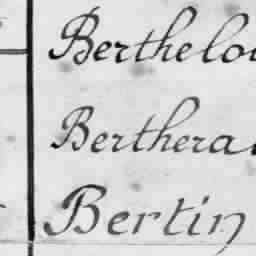 Berthelo
Berthera
Bertin